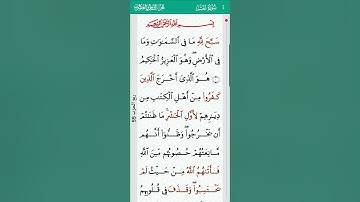 بِسْمِ ٱللَّهِ ٱلرَّحْمَٰنِ ٱلرَّحِيمِ
سَبَّحَ لِلَّهِ مَا فِى ٱلسَّمَٰوَٰتِ وَمَا
فِى ٱلْأَرْضِ ۖ وَهُوَ ٱلْعَزِيزُ ٱلْحَكِيمُ
١ هُوَ ٱلَّذِىٓ أَخْرَجَ ٱلَّذِينَ
كَفَرُوا۟ مِنْ أَهْلِ ٱلْكِتَٰبِ مِن
دِيَٰرِهِمْ لِأَوَّلِ ٱلْحَشْرِ ۚ مَا ظَنَنتُمْ
أَن يَخْرُجُوا۟ ۖ وَظَنُّوٓا۟ أَنَّهُم
مَّانِعَتُهُمْ حُصُونُهُم مِّنَ ٱللَّهِ
فَأَتَىٰهُمُ ٱللَّهُ مِنْ حَيْثُ لَمْ
يَحْتَسِبُوا۟ ۖ وَقَذَفَ فِى قُلُوبِهِمُ
ربع الحزب 55